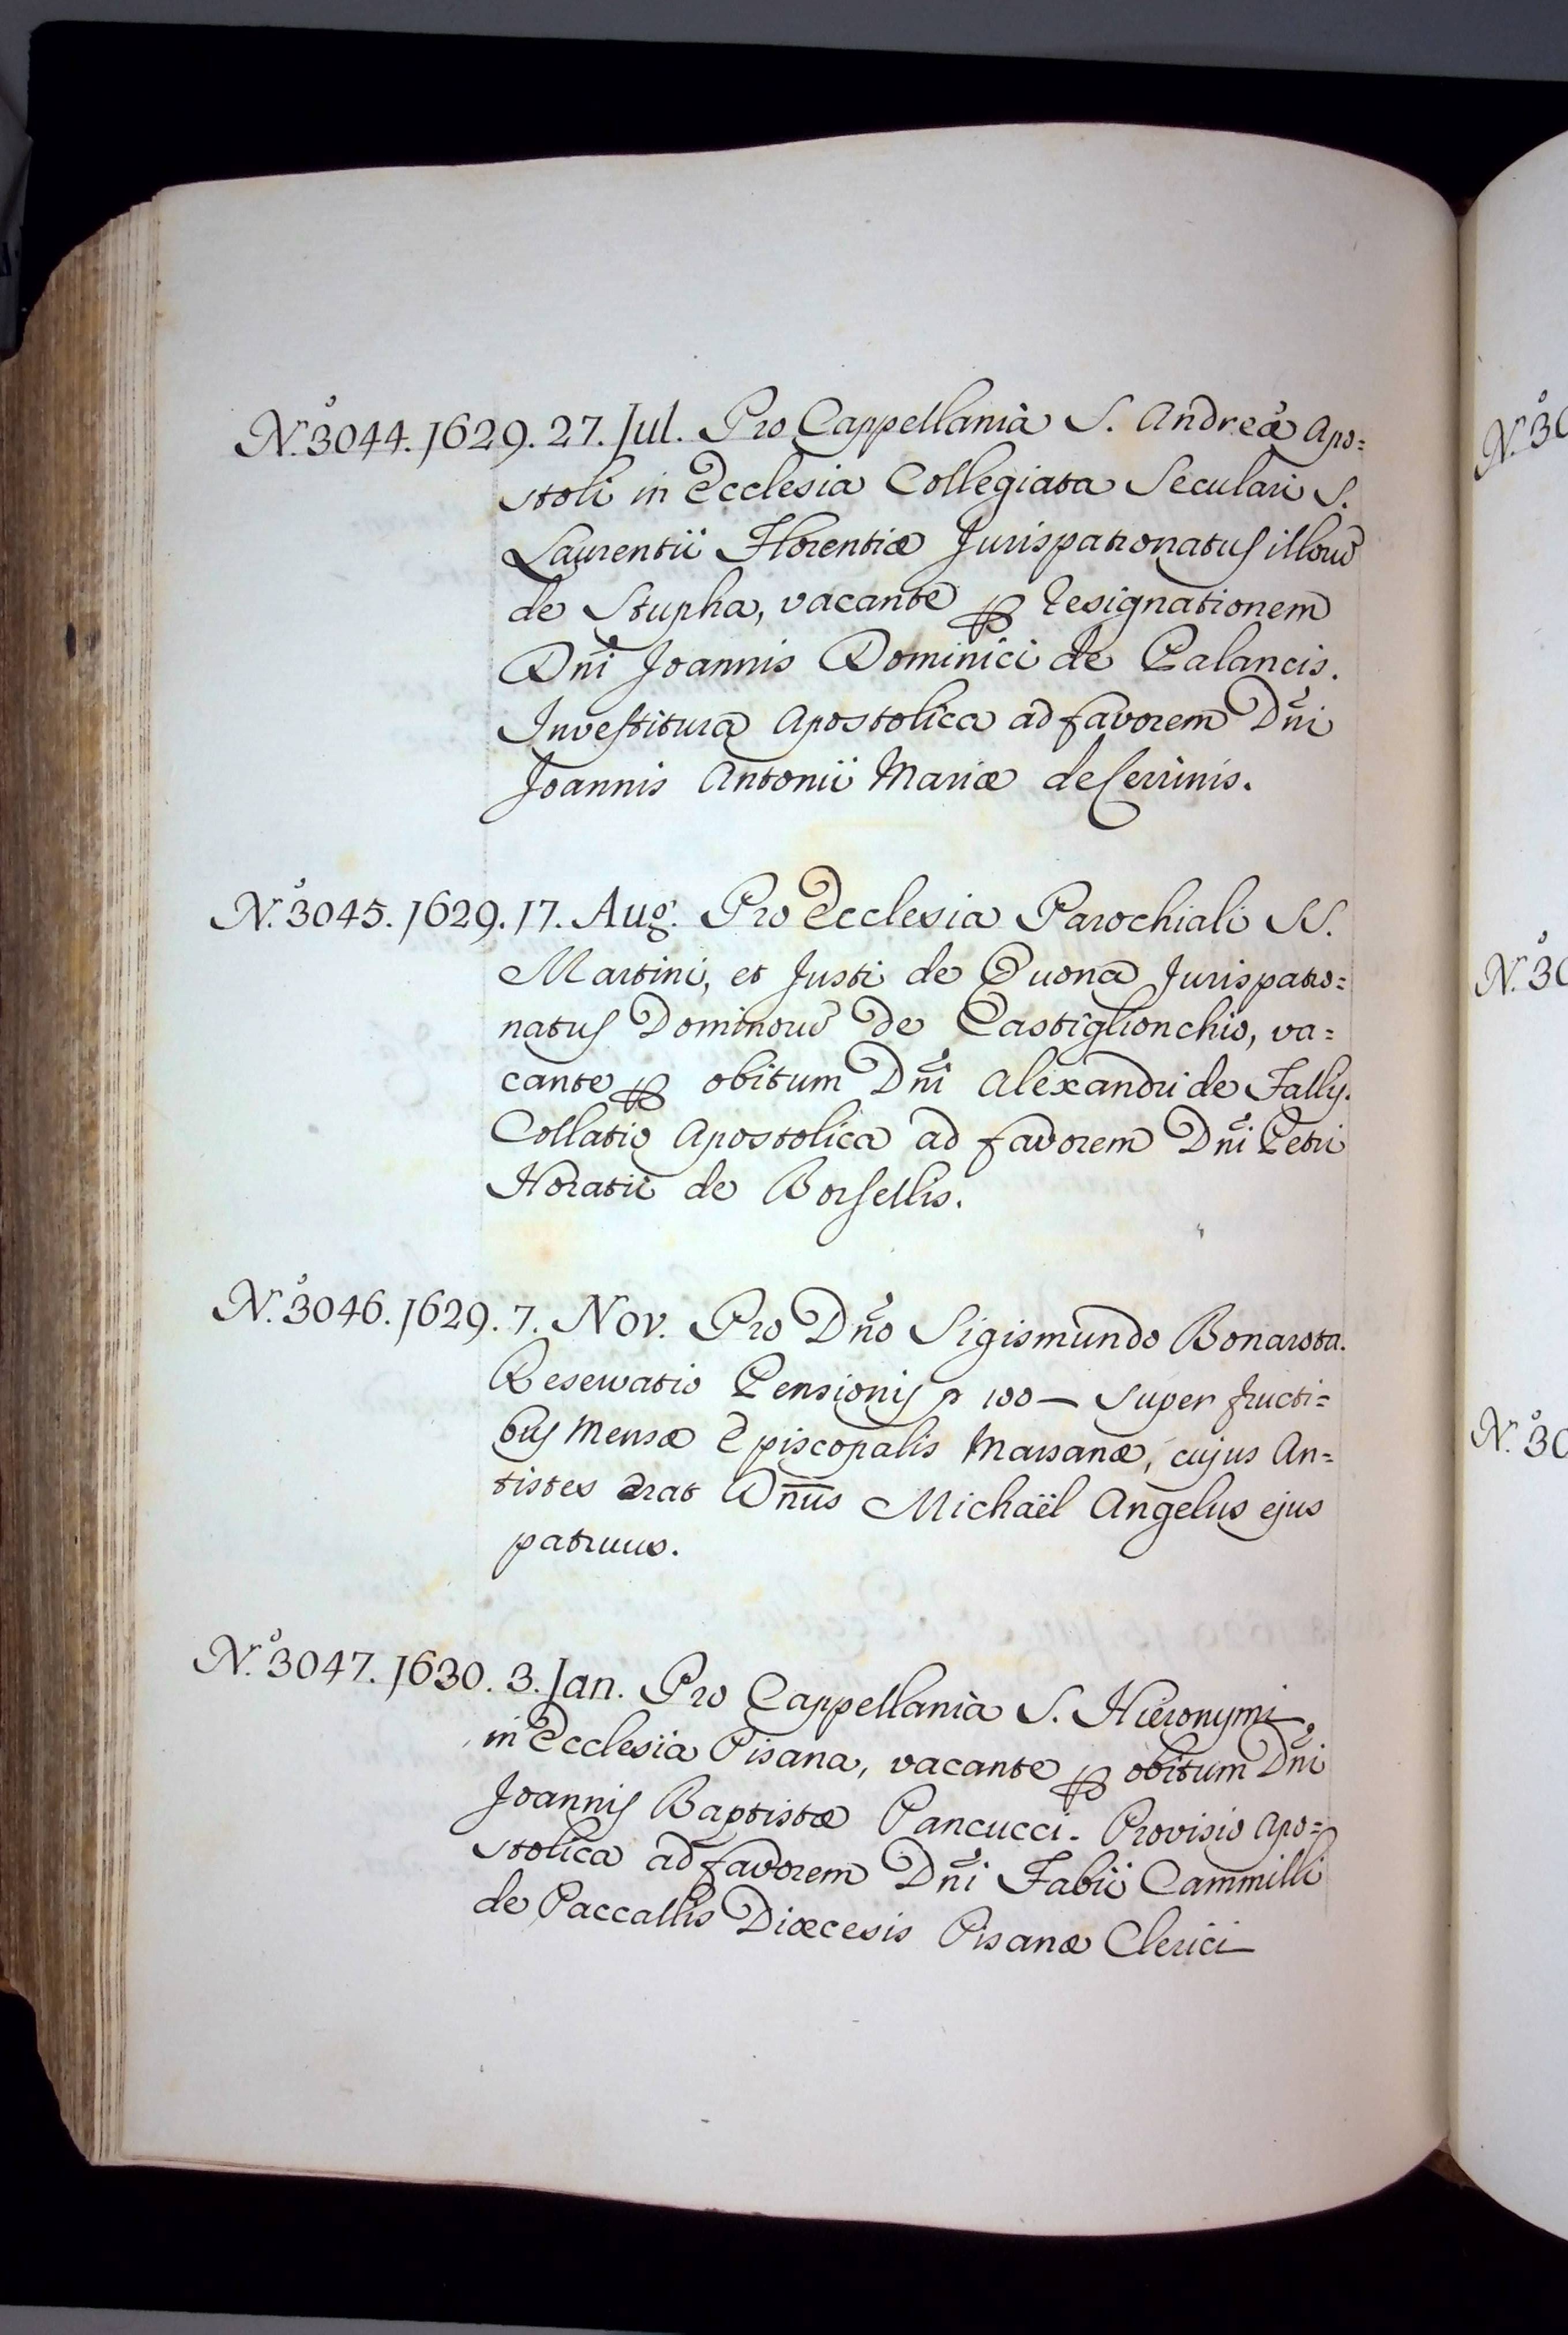 N.º 3044. 1629. 27. Jul. Pro Cappellania S. Andreæ Apo=
stoli in Ecclesia Collegiata Seculari S.
Laurentii Florentiæ Jurispatronatus illorũ
de Stupha, vacante ꝑ Resignationem
Dñi Joannis Dominici de Palancis.
Investitura Apostolica ad favorem Dñi
Joannis Antonii Mariæ de Cerrinis.
N.º 3045. 1629. 17. Aug. Pro Ecclesia Parochiali SS.
Martini, et Justi de Quona Jurispatro=
natus Dominorũ de Castiglionchio, va=
cante ꝑ obitum Dñi Alexandri de Fallÿ.
Collatio Apostolica ad favorem Dñi Petri
Horatii de Borsellis.
N.º 3046. 1629. 7. Nov. Pro Dño Sigismundo Bonarota.
Reservatio Pensionis 100— super fructi=
bus Mensæ Episcopalis Marsanæ, cujus An=
tistes erat Dñus Michaël Angelus ejus
patruus.
N.º 3047. 1630. 3. Jan. Pro Cappellania S. Hieronymi
in Ecclesia Pisana, vacante ꝑ obitum Dñi
Joannis Baptistæ Pancucci. Provisio Apo=
stolica ad favorem Dñi Fabii Cammilli
de Paccallis Diæcesis Pisanæ Clerici—
N.º 30
N.º 30
N.º 30